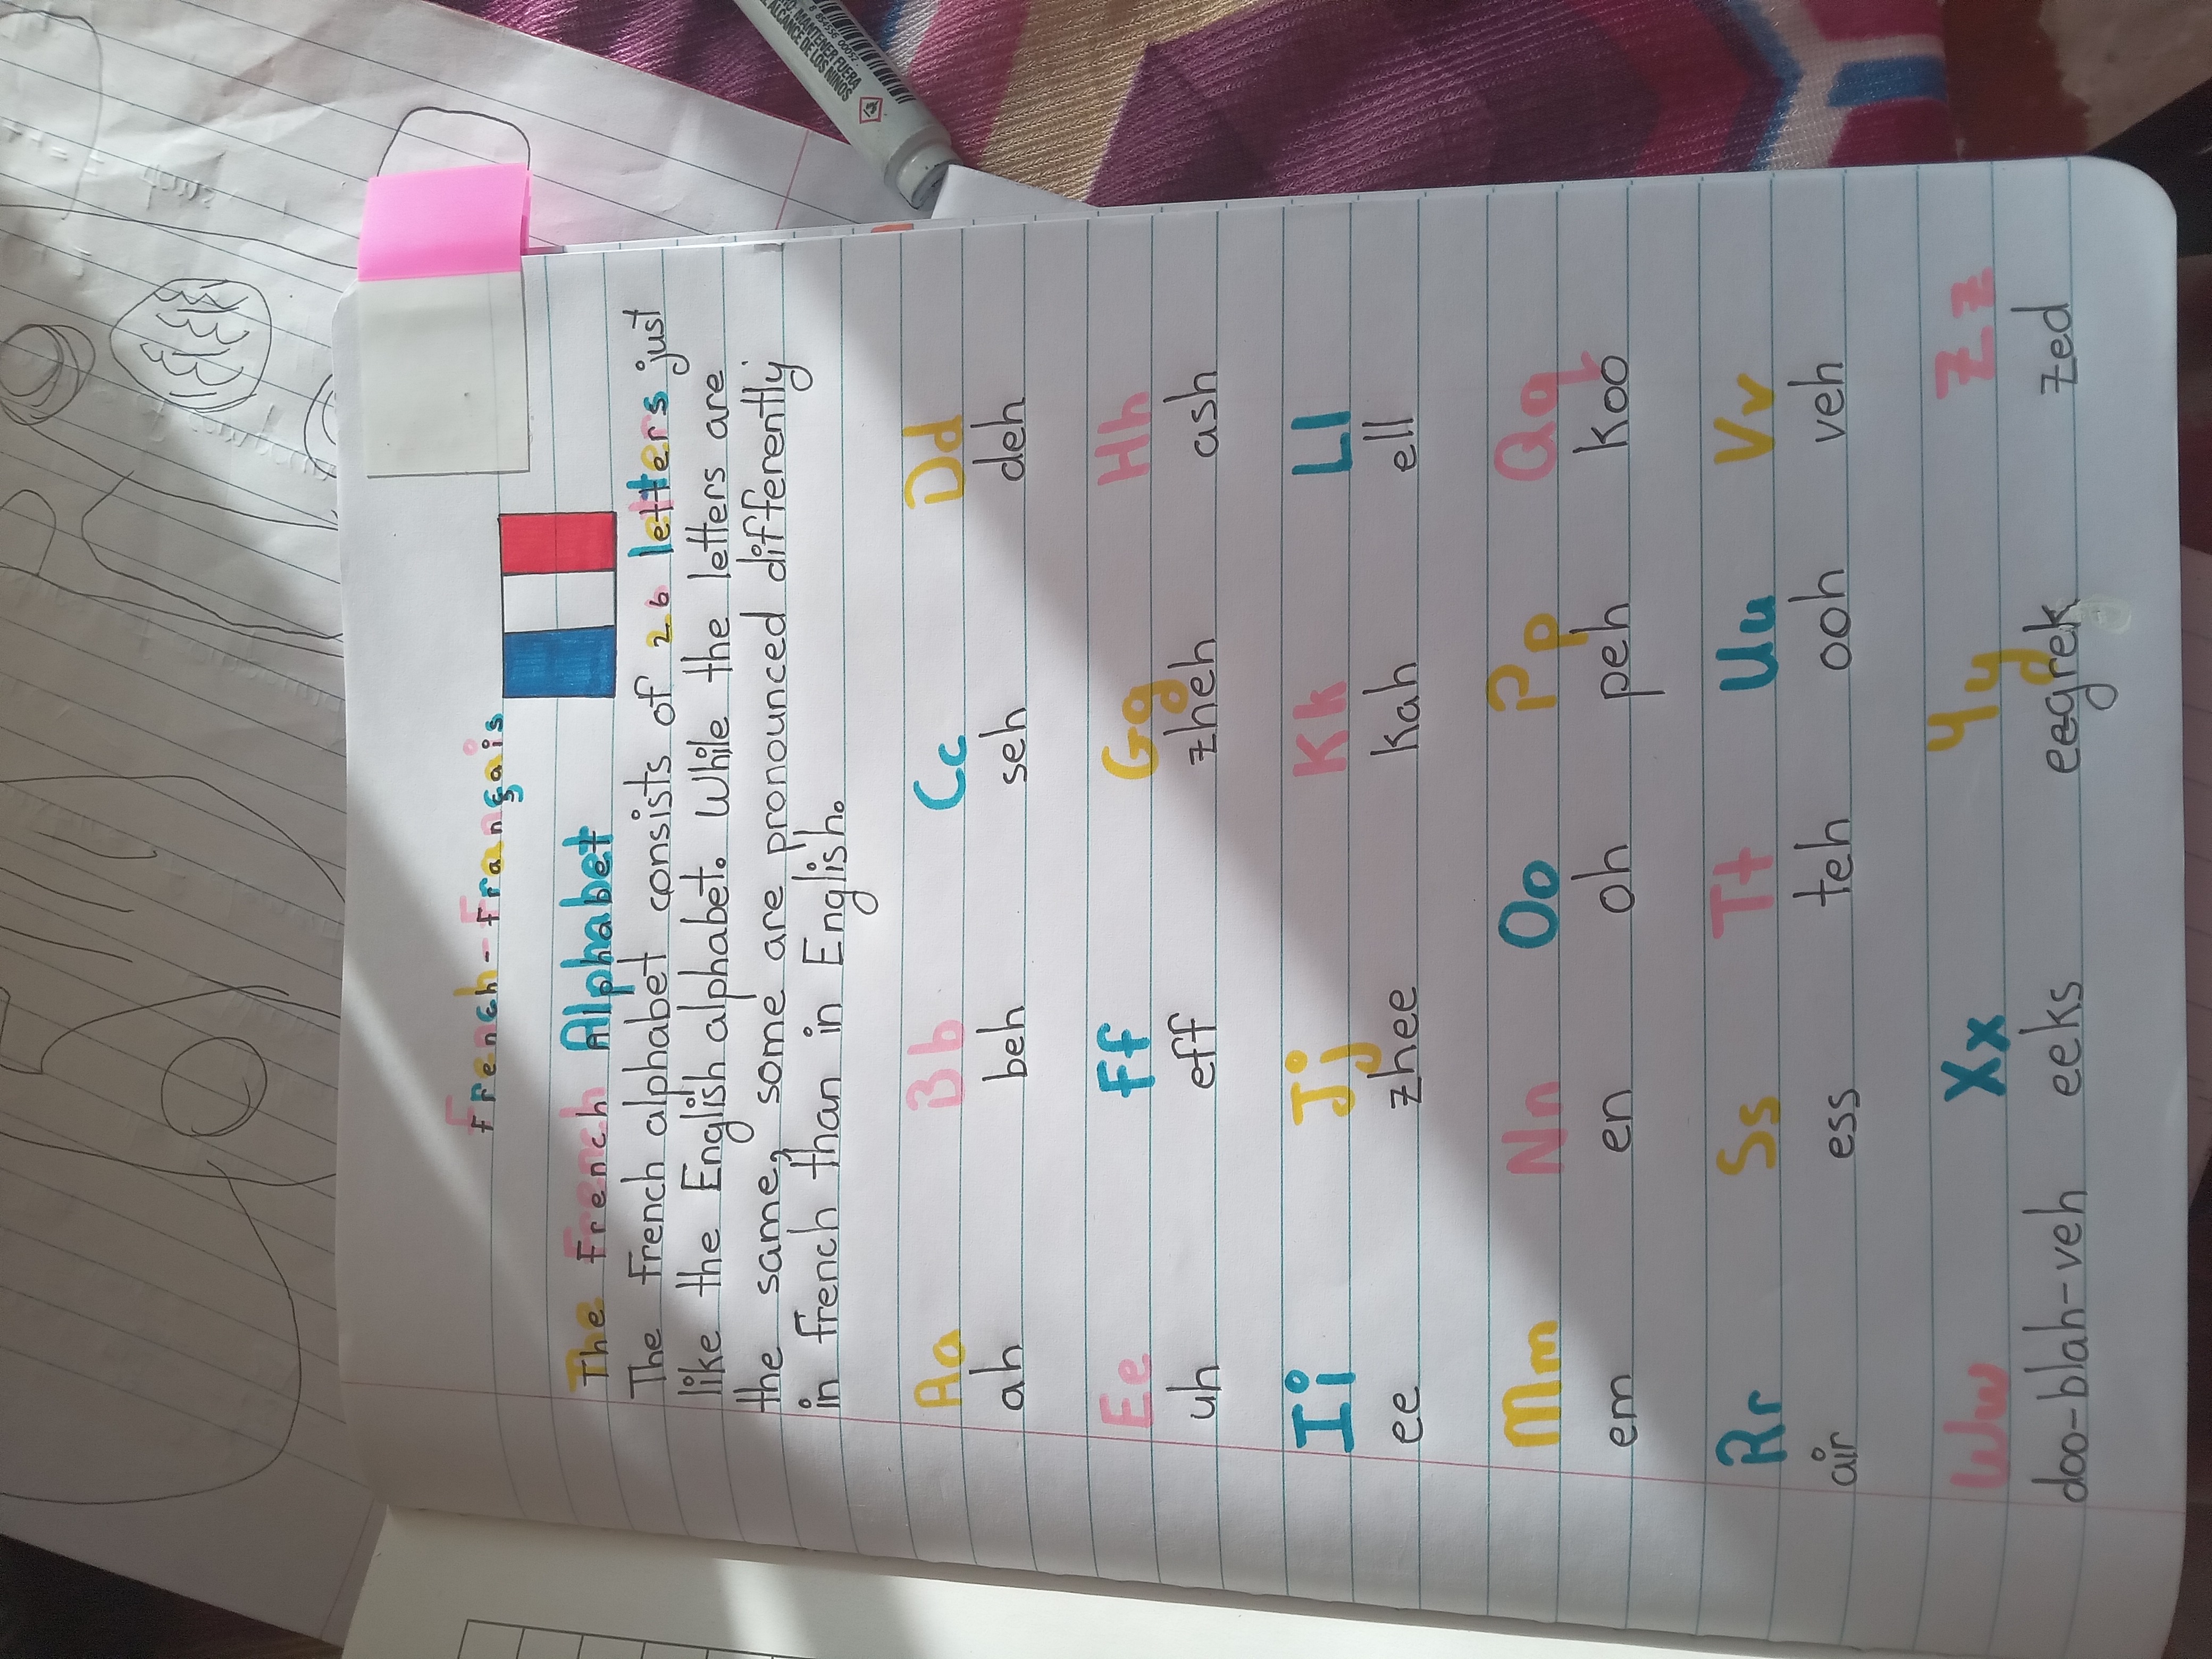 French-Français
The French Alphabet
The French alphabet consists of 26 letters just
like the English alphabet. While the letters are
the same, some are pronounced differently
in french than in English.
Aa Bb Cc Dd
ah beh seh deh
Ee Ff Gg Hh
uh eff zheh ash
Ii Jj Kk Ll
ee zhee kah ell
Mm Nn Oo Pp Qq
em en oh peh koo
Rr Ss Tt Uu Vv
air ess teh ooh veh
Ww Xx Yy Zz
doo-blah-veh eeks eegrek zed
MANTENER FUERA
ALCANCE DE LOS NIÑOS